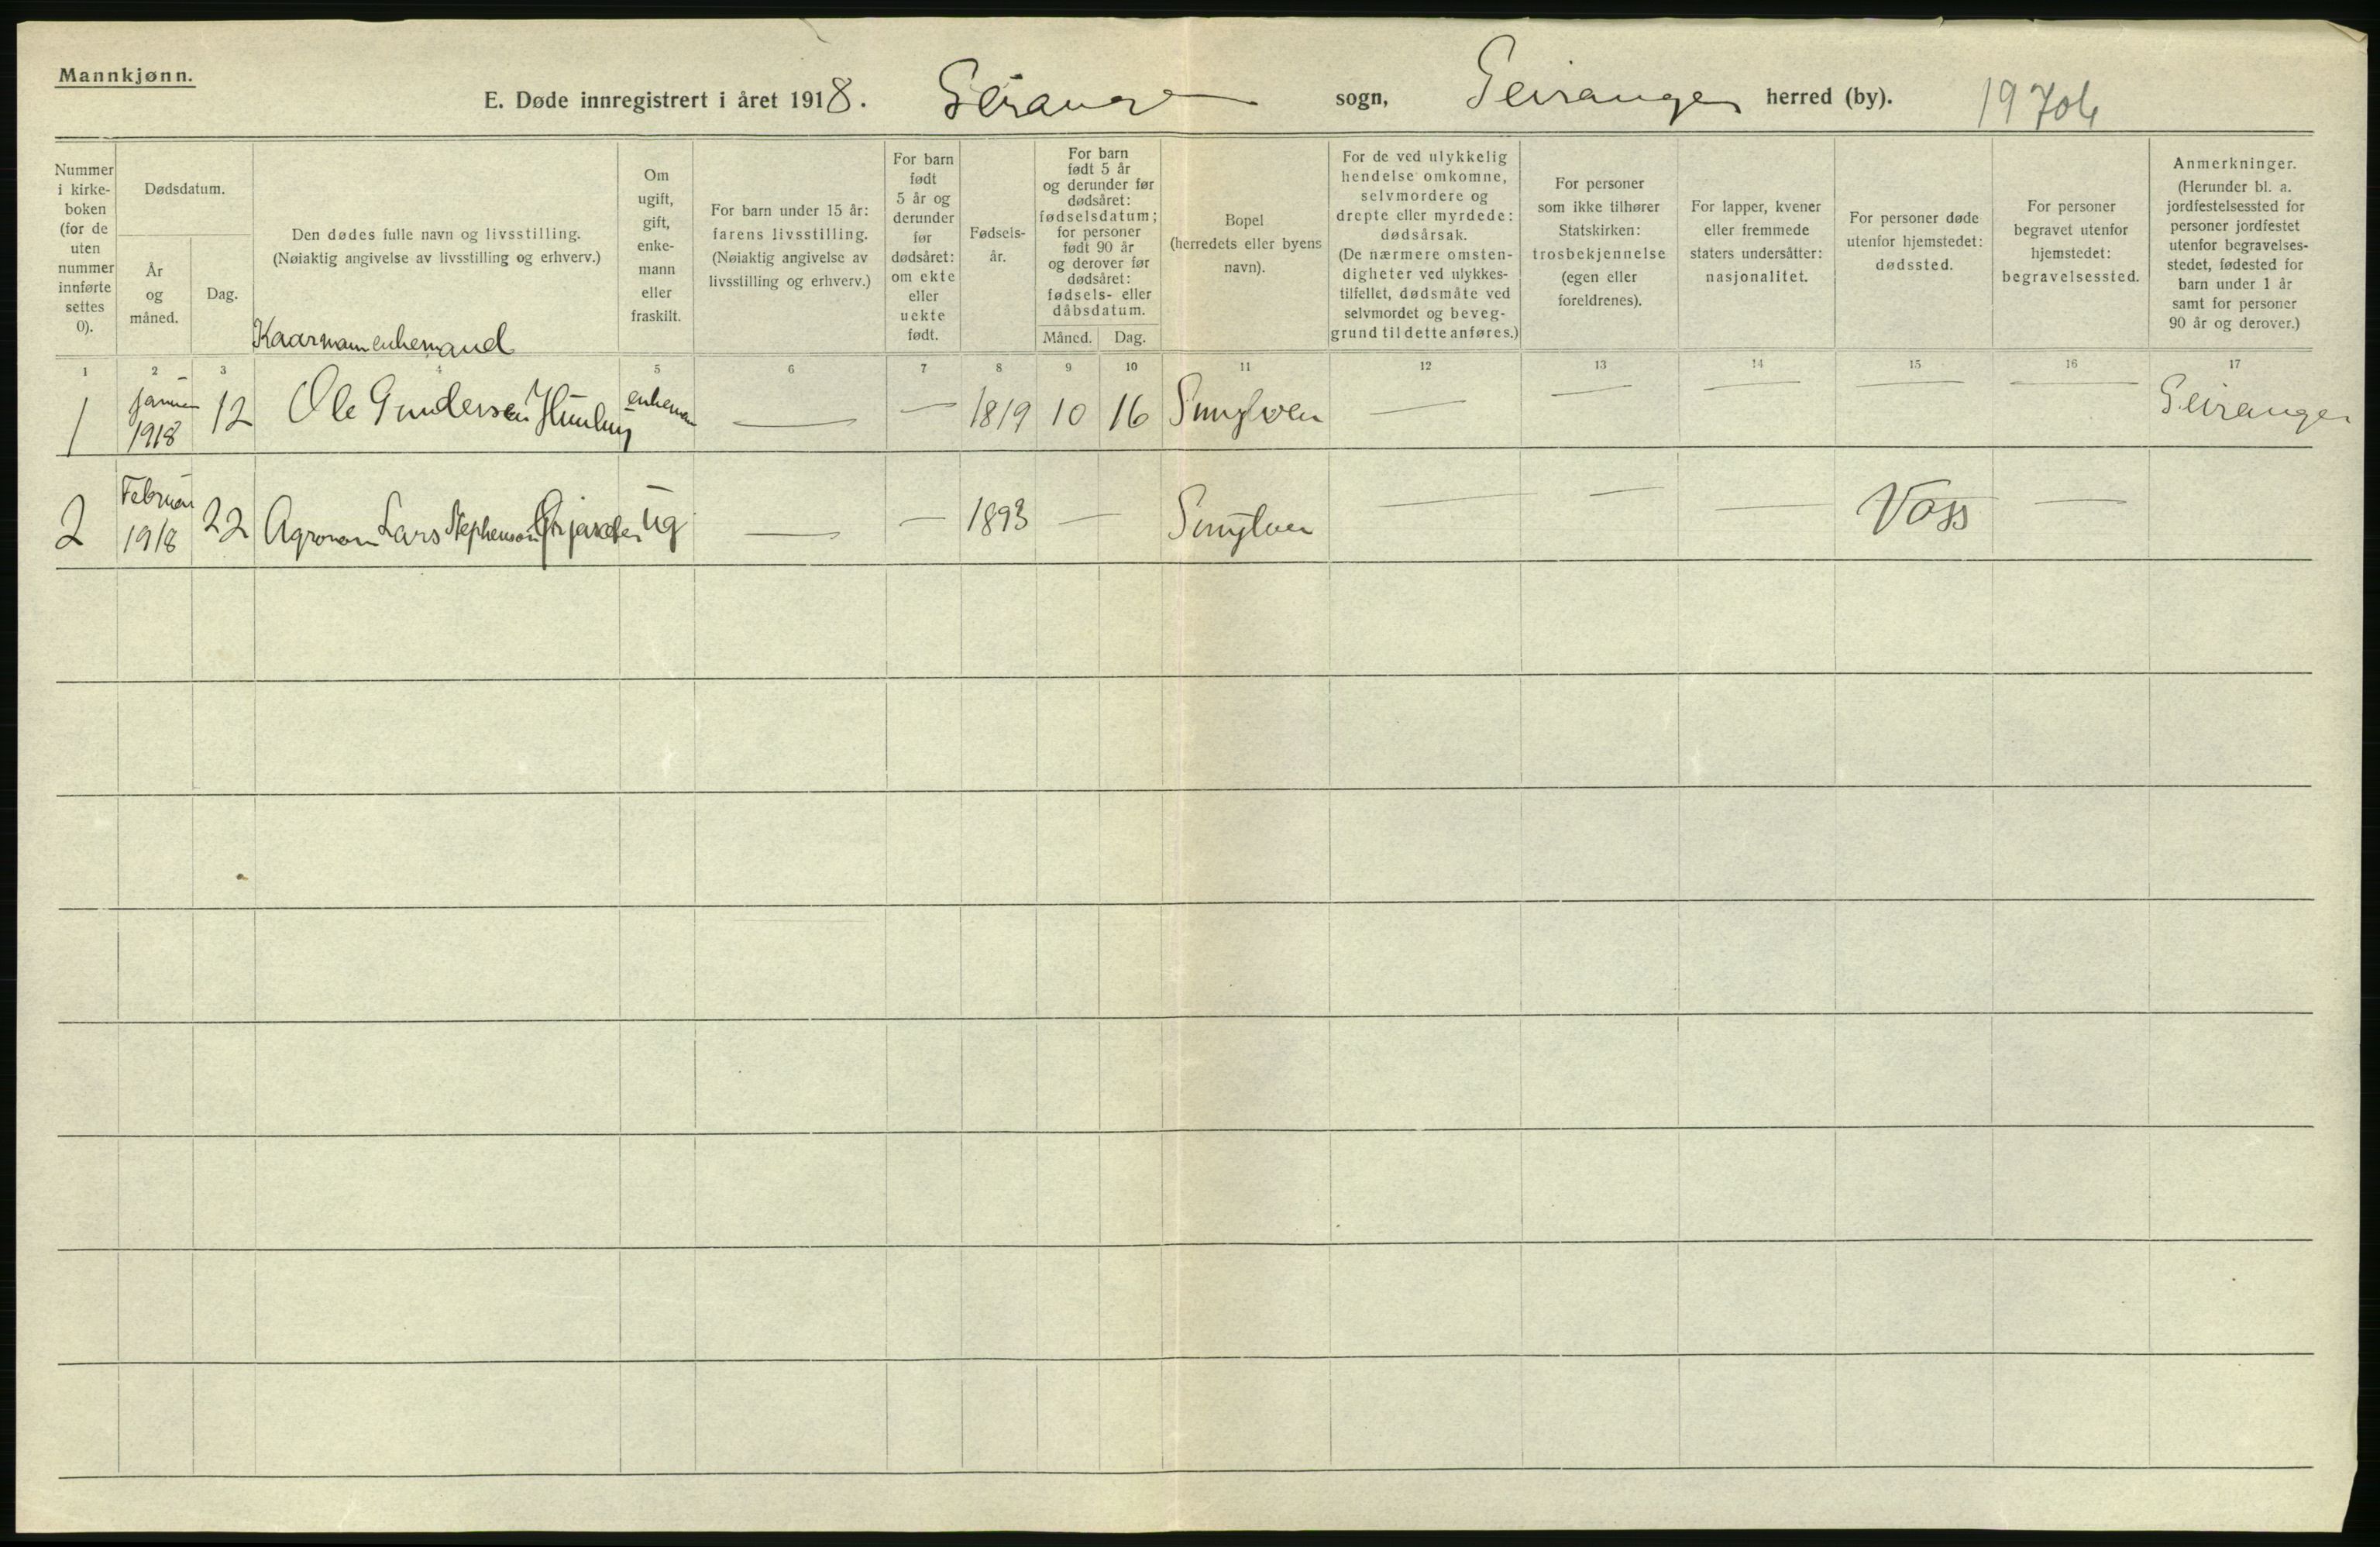 Mannkjønn.
E. Døde innregistrert i året 1918. Geiranger sogn, Geiranger herred (by). 19706
Nummer
i kirke-
boken
(for de
uten
nummer
innførte
settes
0).
Dødsdatum.
År
og
måned.
Dag.
Den dødes fulle navn og livsstilling.
(Nøiaktig angivelse av livsstilling og erhverv.)
Om
ugift,
gift,
enke-
mann
eller
fraskilt.
For barn under 15 år:
farens livsstilling.
(Nøiaktig angivelse av
livsstilling og erhverv.)
For barn
født
5 år og
derunder
før
dødsåret:
om ekte
eller
uekte
født.
Fødsels-
år.
For barn
født 5 år
og derunder før
dødsåret:
fødselsdatum;
for personer
født 90 år
og derover før
dødsåret:
fødsels- eller
dåbsdatum.
Måned. Dag.
Bopel
(herredets eller byens
navn).
For de ved ulykkelig
hendelse omkomne,
selvmordere og
drepte eller myrdede:
dødsårsak.
(De nærmere omsten-
digheter ved ulykkes-
tilfellet, dødsmåte ved
selvmordet og beveg-
grund til dette anføres.)
For personer
som ikke tilhører
Statskirken:
trosbekjennelse
(egen eller
foreldrenes).
For lapper, kvener
eller fremmede
staters undersåtter:
nasjonalitet.
For personer døde
utenfor hjemstedet:
dødssted.
For personer
begravet utenfor
hjemstedet:
begravelsessted.
Anmerkninger.
(Herunder bl. a.
jordfestelsessted for
personer jordfestet
utenfor begravelses-
stedet, fødested for
barn under 1 år
samt for personer
90 år og derover.)
1 2 3 4 5 6 7 8 9 10 11 12 13 14 15 16 17
Kaarmann enkemand
1 Januar 1918 12 Ole Gundersen enkeman — — 1819 10 16 Sunylven — — — — — Geiranger
2 Februar 1918 22 Agronom Lars Stephensen ug — — 1893 — Sunylven — — — Voss —